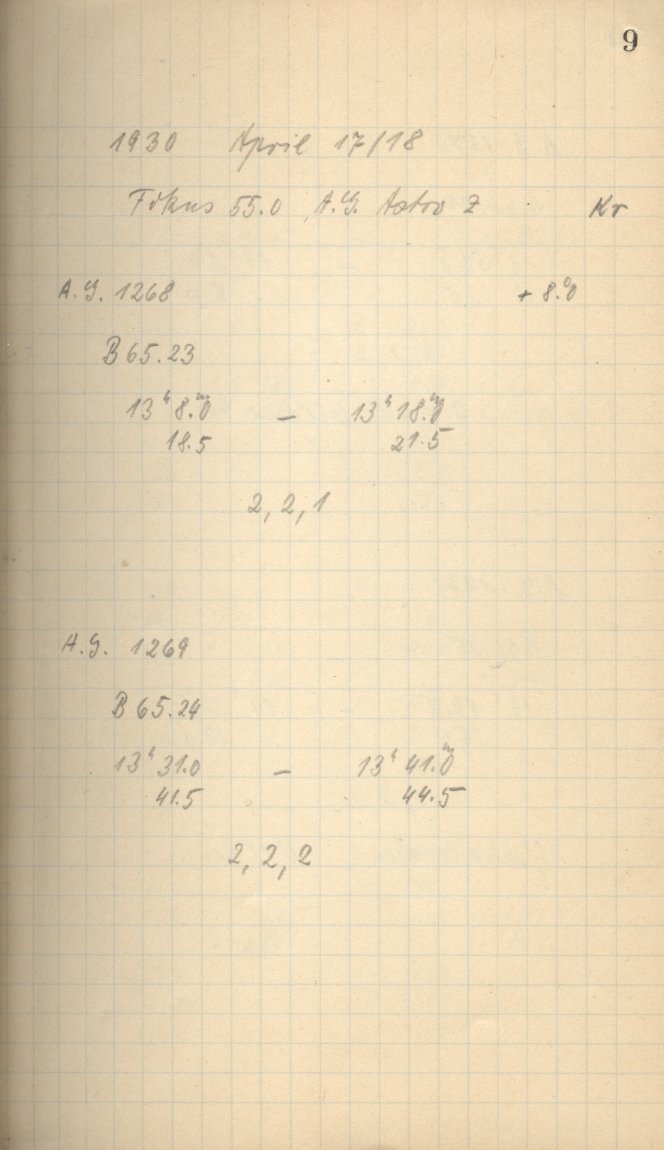 9
1930 April 17/18
Fokus 55.0 A.G. Astro Z Kr
A.G. 1268 + 8.°0
B 65.23
13ʰ 8.ᵐ0 – 13ʰ 18.ᵐ0
18.5 21.5
2, 2, 1
A.G. 1269
B 65.24
13ʰ 31.0 – 13ʰ 41.ᵐ0
41.5 44.5
2, 2, 2